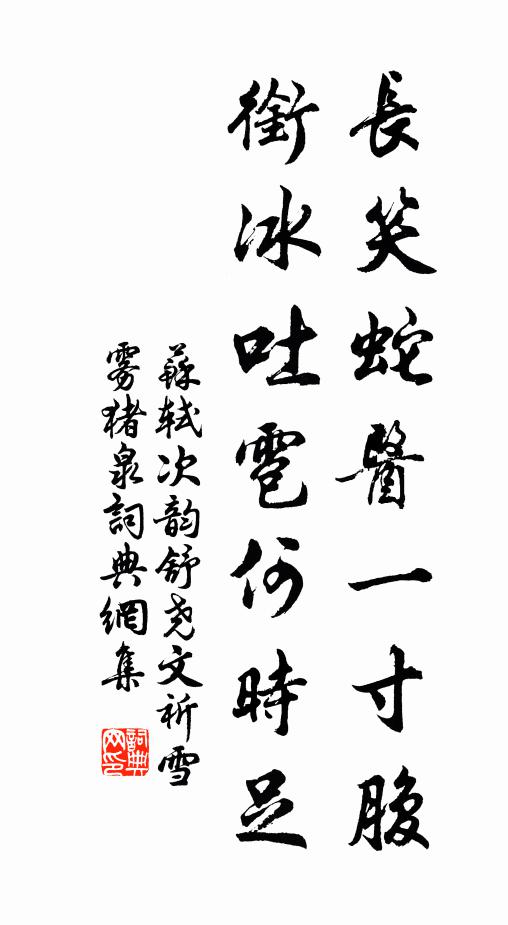 長笑蛇醫一寸腹
銜冰吐雹何時足
蘇軾次韵舒尧文祈雪
雾猪泉詞典網集
詞典
网印